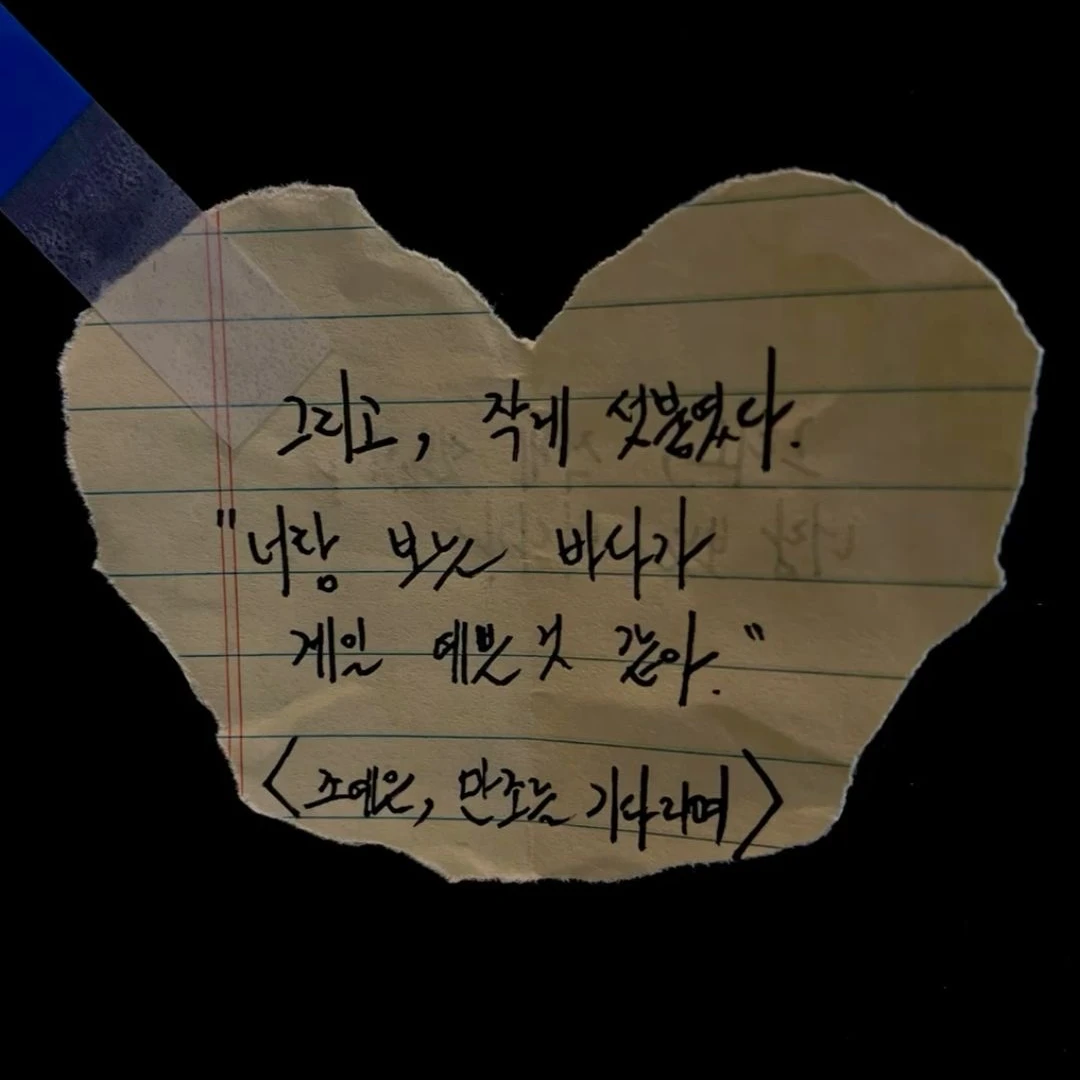 그리고, 작게 섯붙였다.
"너랑 보는 바다가
게일 예쁜 것 같아."
<조예은, 만조를 기다리며>